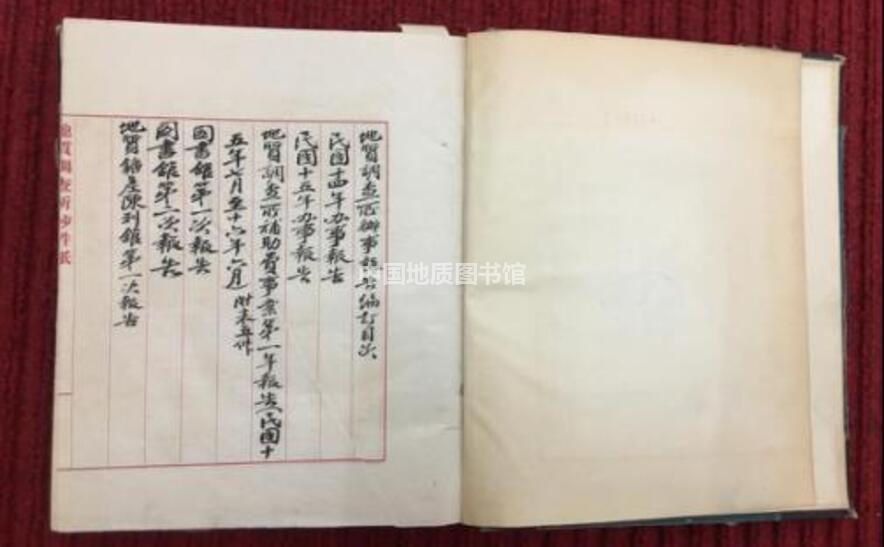 地質調查所办事報告編訂目次
民國十四年办事報告
民國十五年办事報告
地質調查所補助費事業第一年報告(民國十
五年七月至十六年六月 附表五件
圖書館第一次報告
圖書館第二次報告
地質鑛產陳列館第一次報告
中国地质图书馆